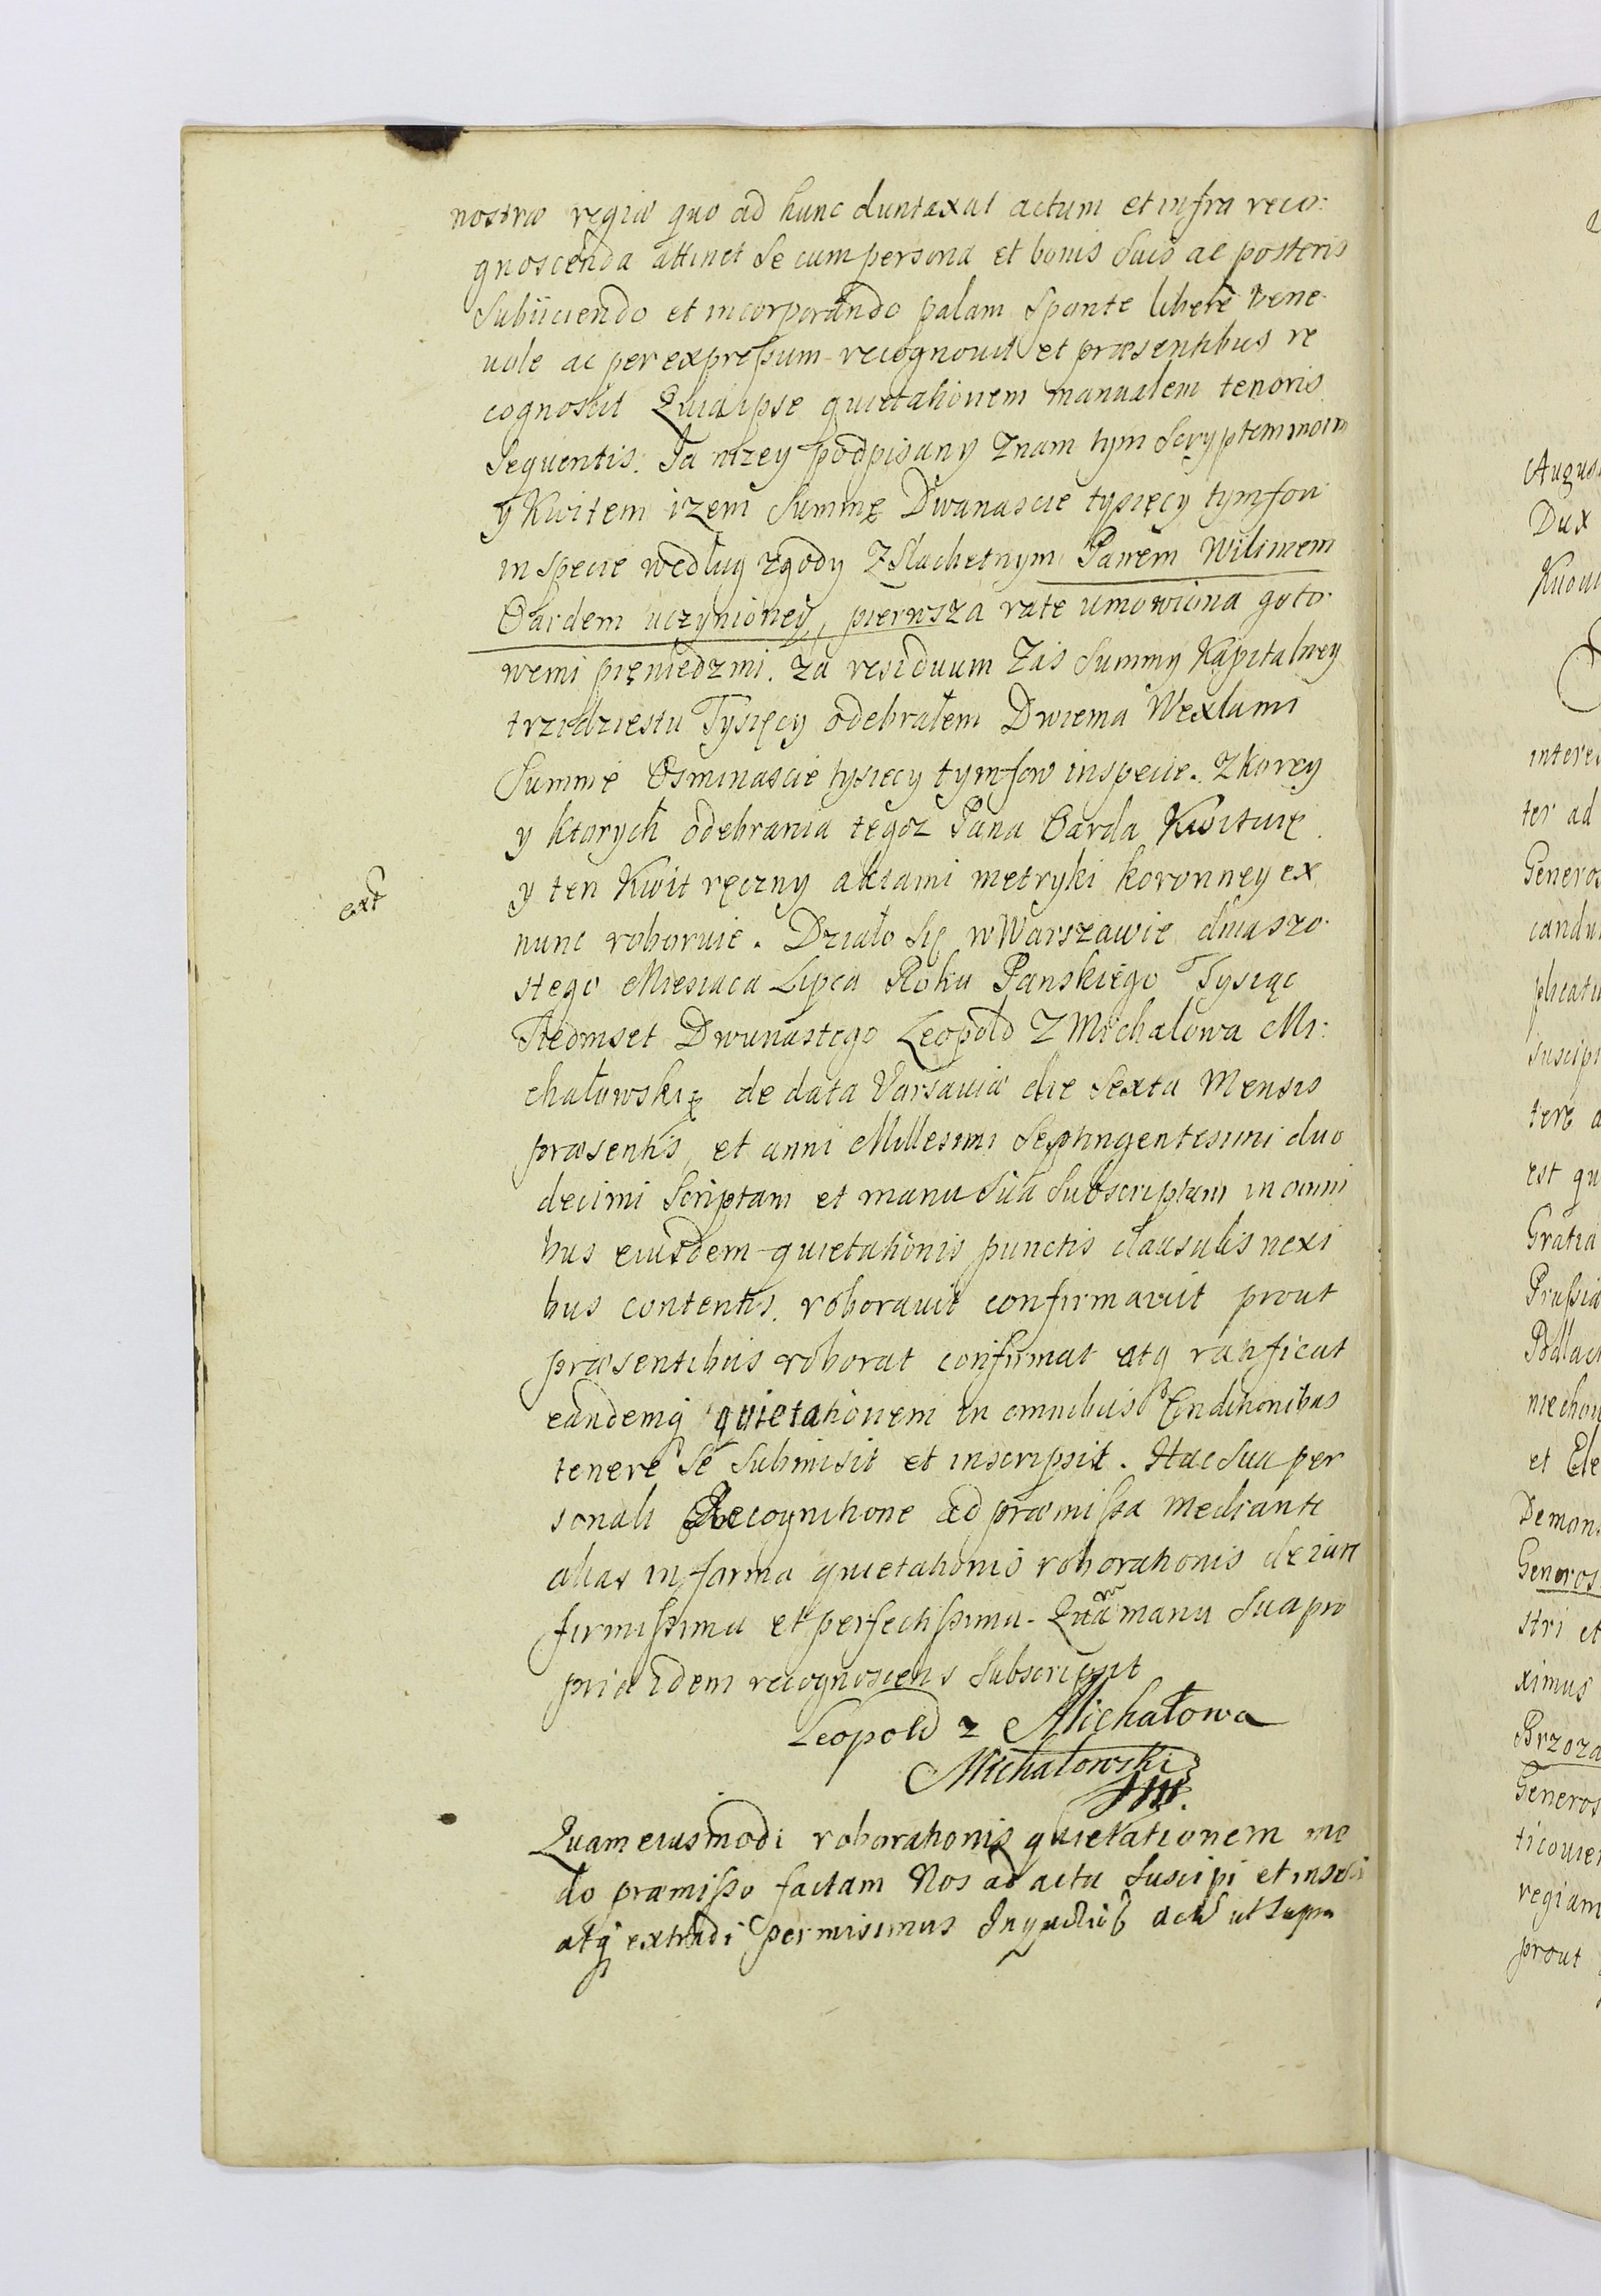 nostræ regiæ quo ad hunc duntaxat actum et infra reco:
gnoscenda attinet se cum persona et bonis suis ac posteris
subiiciendo et incorporando palam sponte libere bene
uole ac per expressum recognouit et præsentibus re
cognoscit Quia ipse quietationem manualem tenoris
sequentis. Ja nizey podpisany znam tym scryptem moim
y Kwitem izem summę Dwanascie tysięcy tymfow
in specie według zgody z Slachetnym Panem Wilimem
Oardem uczynioney, pierwsza rate umowiona goto
wemi pięniedzmi. za residuum zas summy Kapitalney
trzidziestu Tysięcy odebrałem Dwiema Wexlami
summe Osminascie tysiecy tymfow in specie. z korey
y ktorych odebrania tegoz Pana Oarda Kwituię
y ten Kwit ręczny aktami metryki koronney ex
nunc roboruie. Działo się w Warszawie dnia szo
stego Miesiaca Lipca Roku Panskiego Tysiąc
Siedmset Dwunastego Leopold z Michałowa Mi:
chałowskię de data Varsauiæ die sexta Mensis
præsentis, et anni Millesimi septingentesimi duo
decimi scriptam et manu sua subscriptam in omni
bus eiusdem quietationis punctis clausulis nexi
bus contentis. roborauit confirmauit prout
præsentibus roborat confirmat atq ratificat
eandemq quietationem in omnibus Conditionibus
tenere se submisit et inscripsit. Hac sua per
sonali Recognitione ad præmissa mediante
alias in forma quietationis roborationis de iure
firmissima et perfectissima. Quam manu sua pro
pria idem recognoscens subscripsit
Leopold z Michałowa
Michałowski
mp.
Quam eiusmodi roborationis quietationem mo
do præmisso factam Nos ad acta suscipi et inscri
atq extradi permisimus act ut supra
ext